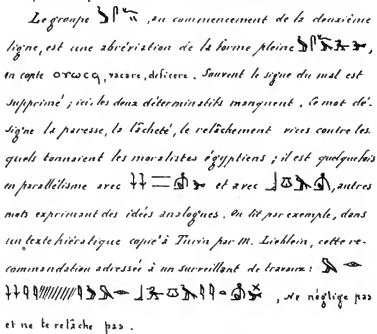 Le groupe , au commencement de la deuxième
ligne, est une abréviation de la forme pleine ,
en copte ⲟⲩⲱⲥϥ, vacare, deficere. Souvent le signe du mal est
supprimé ; ici les deux déterminatifs manquent. Ce mot dé-
signe la paresse, la lâcheté, le relâchement vices contre les
quels tonnaient les moralistes égyptiens ; il est quelquefois
en parallélisme avec et avec , autres
mots exprimant des idées analogues. On lit par exemple, dans
un texte hiératique copié à Turin par M. Lieblein, cette re-
commandation adressée à un surveillant de travaux :
, Ne néglige pas
et ne te relâche pas .